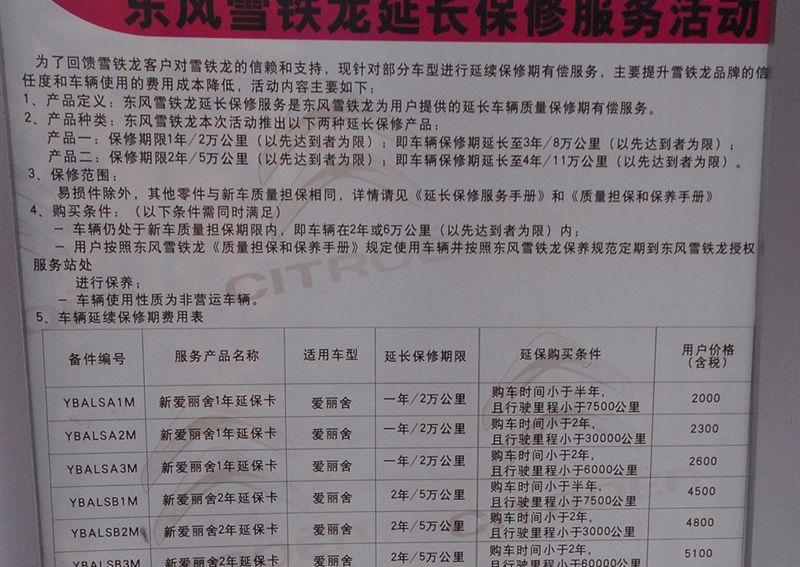 东风雪铁龙延长保修服务活动
为了回馈雪铁龙客户对雪铁龙的信赖和支持，现针对部分车型进行延续保修期有偿服务，主要提升雪铁龙品牌的信
任度和车辆使用的费用成本降低，活动内容主要如下：
1、产品定义：东风雪铁龙延长保修服务是东风雪铁龙为用户提供的延长车辆质量保修期有偿服务。
2、产品种类：东风雪铁龙本次活动推出以下两种延长保修产品：
产品一：保修期限1年/2万公里（以先达到者为限）；即车辆保修期延长至3年/8万公里（以先达到者为限）；
产品二：保修期限2年/5万公里（以先达到者为限）；即车辆保修期延长至4年/11万公里（以先达到者为限）。
3、保修范围：
易损件除外，其他零件与新车质量担保相同，详情请见《延长保修服务手册》和《质量担保和保养手册》
4、购买条件：（以下条件需同时满足）
- 车辆仍处于新车质量担保期限内，即车辆在2年或6万公里（以先达到者为限）内；
- 用户按照东风雪铁龙《质量担保和保养手册》规定使用车辆并按照东风雪铁龙保养规范定期到东风雪铁龙授权
服务站处
进行保养；
- 车辆使用性质为非营运车辆。
5、车辆延续保修期费用表
备件编号 服务产品名称 适用车型 延长保修期限 延保购买条件 用户价格（含税）
YBALSA1M 新爱丽舍1年延保卡 爱丽舍 一年/2万公里 购车时间小于半年，且行驶里程小于7500公里 2000
YBALSA2M 新爱丽舍1年延保卡 爱丽舍 一年/2万公里 购车时间小于2年，且行驶里程小于30000公里 2300
YBALSA3M 新爱丽舍1年延保卡 爱丽舍 一年/2万公里 购车时间小于2年，且行驶里程小于6000公里 2600
YBALSB1M 新爱丽舍2年延保卡 爱丽舍 2年/5万公里 购车时间小于半年，且行驶里程小于7500公里 4500
YBALSB2M 新爱丽舍2年延保卡 爱丽舍 2年/5万公里 购车时间小于2年，且行驶里程小于3000公里 4800
YBALSB3M 新爱丽舍2年延保卡 爱丽舍 2年/5万公里 购车时间小于2年，且行驶里程小于60000公里 5100
CITROËN